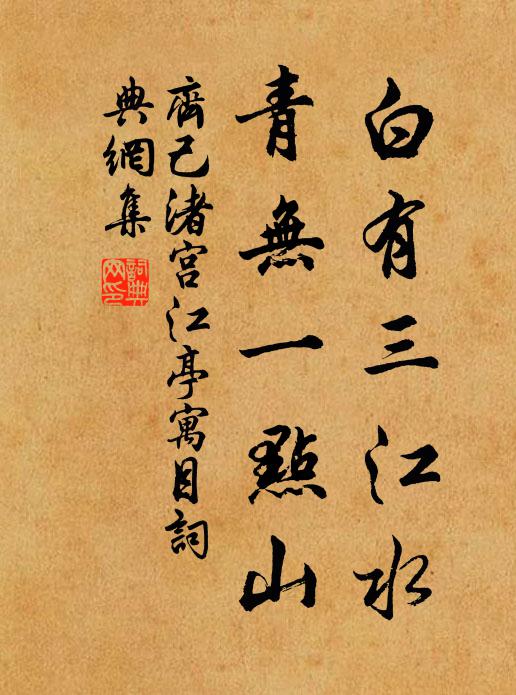 白有三江水
青無一點山
齊己渚宮江亭寓目詞
典網集
詞典網印